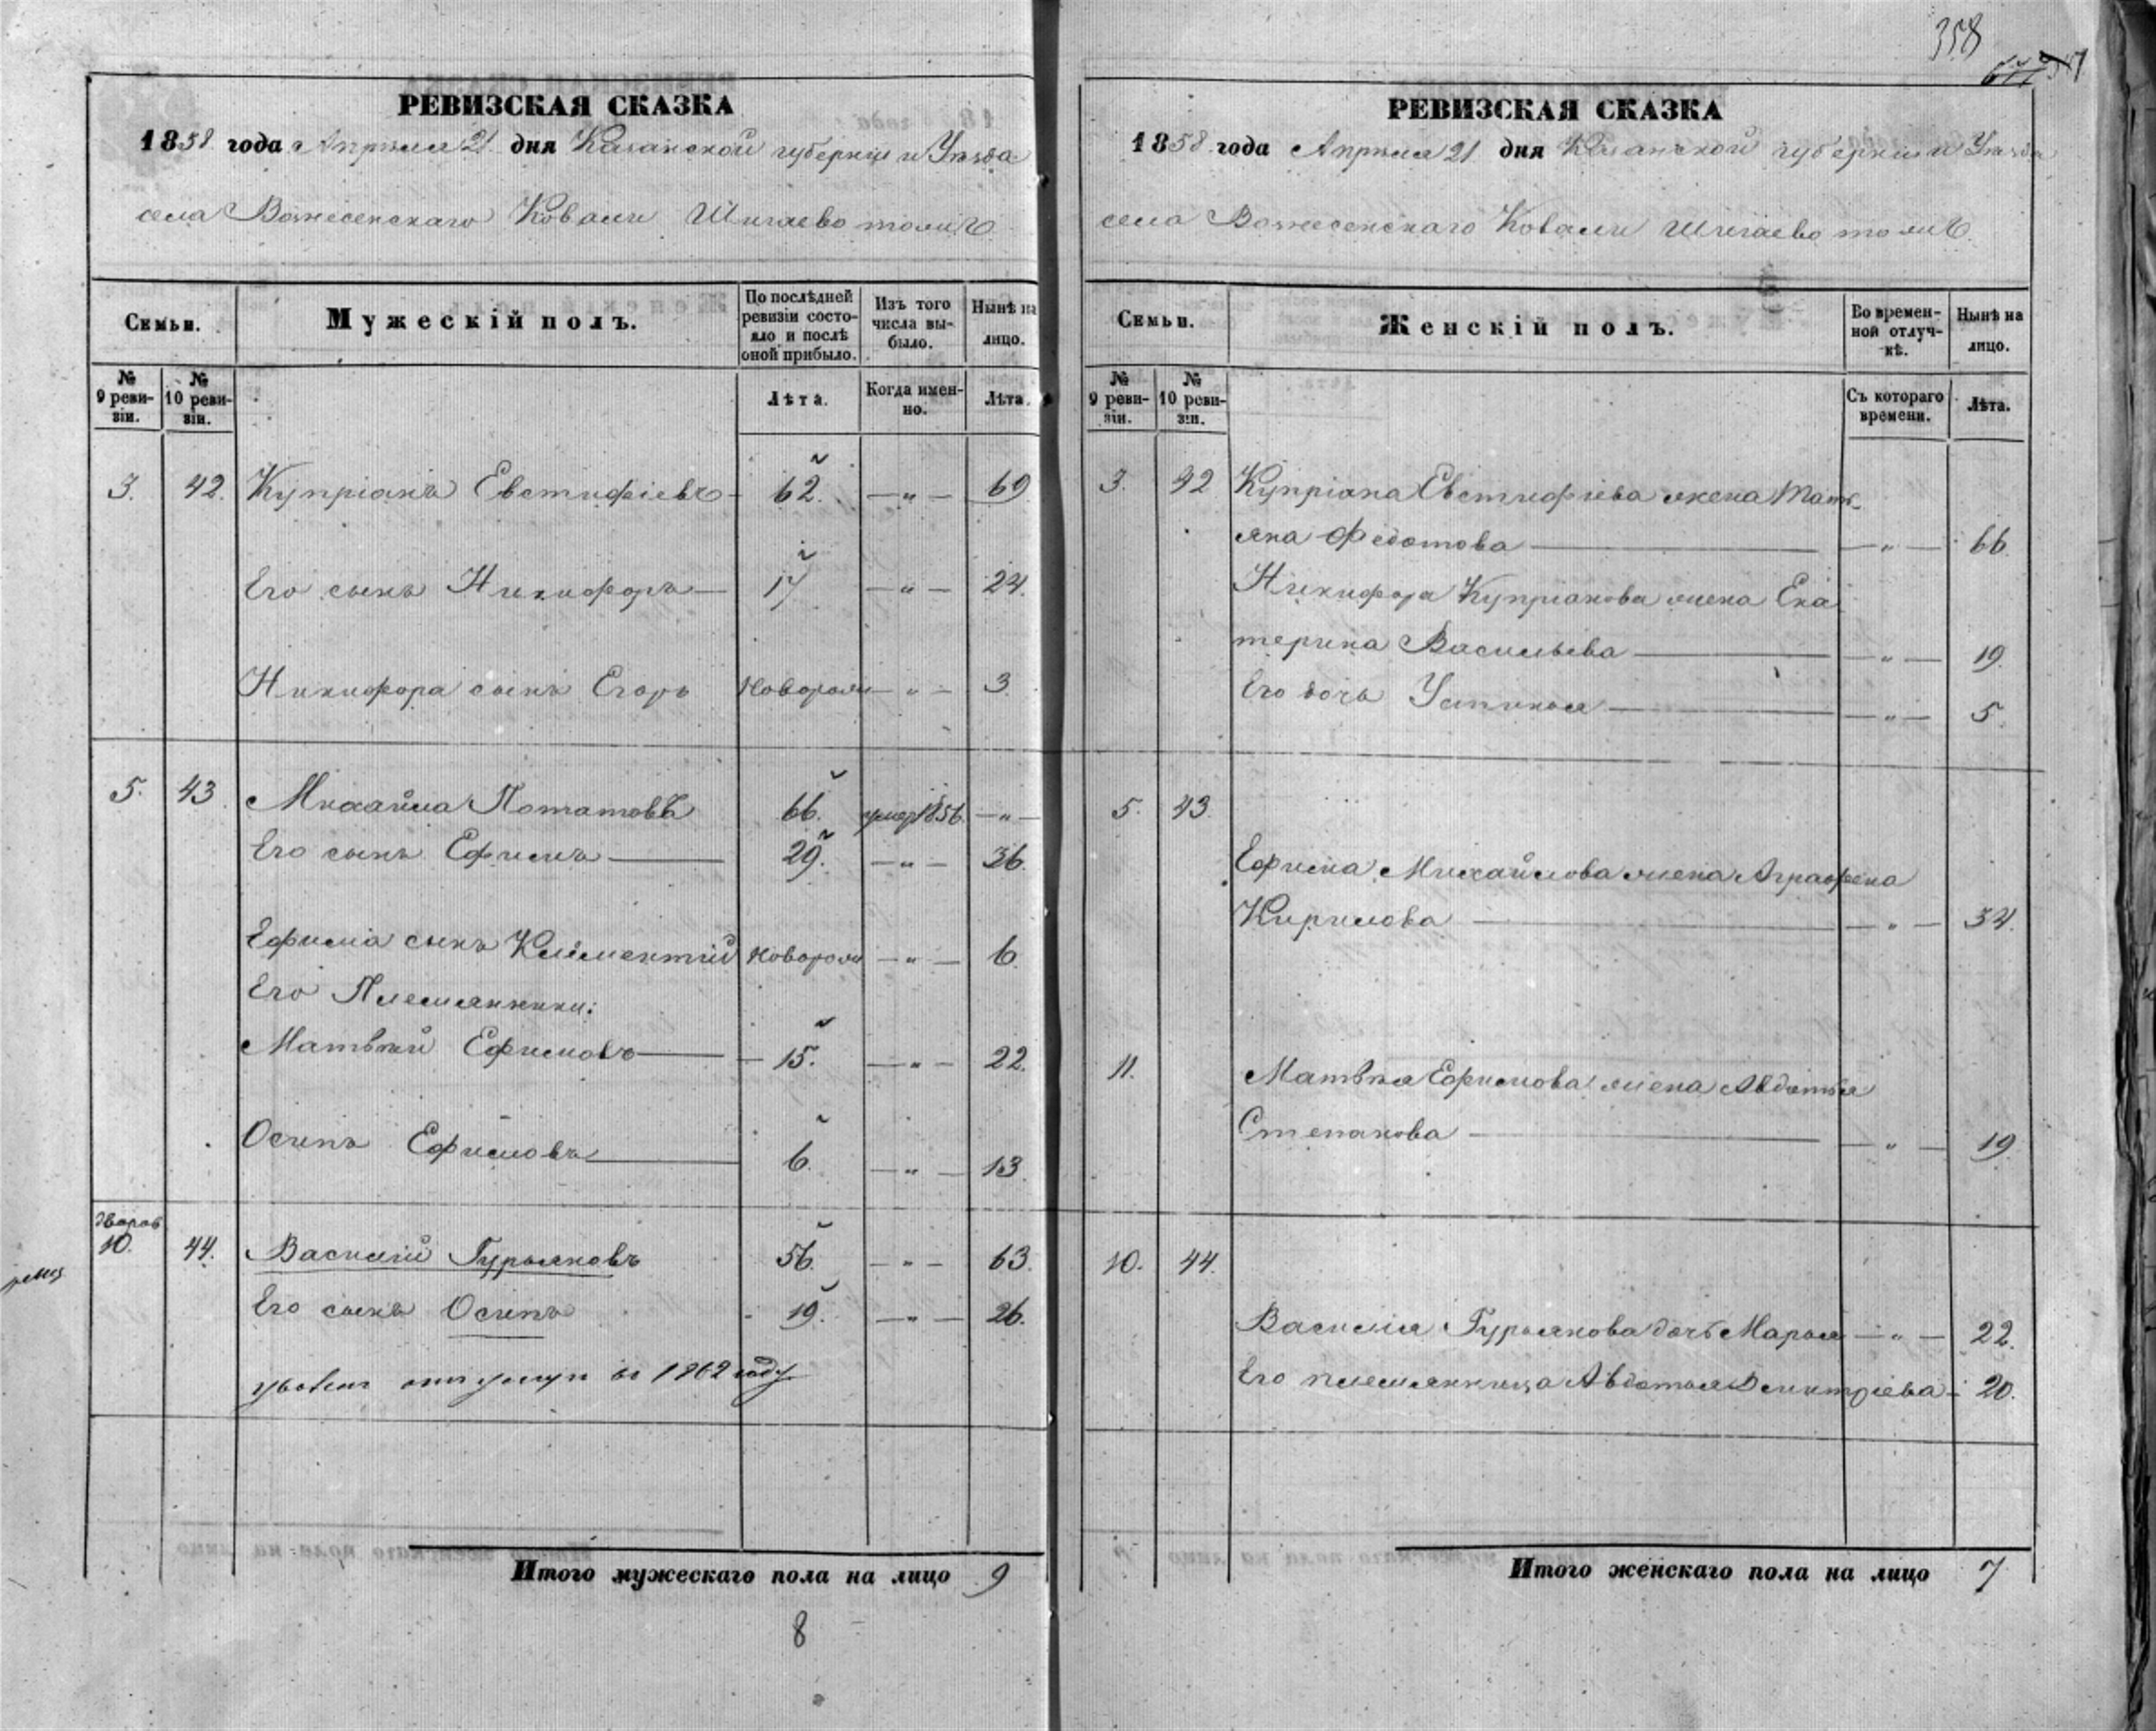 358
РЕВИЗСКАЯ СКАЗКА
1858 года Апрѣля 21 дня Казанской губерніи и Уѣзда
села Вознесенскаго Ковали Шигаево тожъ
Семьи. Мужескій полъ. По послѣдней ревизіи состояло и послѣ оной прибыло. Изъ того числа выбыло. Нынѣ на лицо.
№ 9 ревизіи. № 10 ревизіи. Лѣта. Когда именно. Лѣта.
3. 42. Купріянъ Евстифіевъ 62. — " — 69
Его сынъ Никифоръ 17 — " — 24.
Никифора сынъ Егоръ новорож — " — 3.
5. 43. Михайла Потаповъ 66. умер 1856. — " —
Его сынъ Ефимъ 29. — " — 36.
Ефима сынъ Климентий новорож — " — 6.
Его Племянники:
Матвѣй Ефимовъ — 15. — " — 22.
Осипъ Ефимовъ 6. — " — 13.
дворов
10. 44. Василій Гурьяновъ 56. — " — 63.
Его сынъ Осипъ 19. — " — 26.
в 1862 году
Итого мужескаго пола на лицо 9
8
РЕВИЗСКАЯ СКАЗКА
1858 года Апрѣля 21 дня Казанской губерніи и Уѣзда
села Вознесенскаго Ковали Шигаево тожъ.
Семьи. Женскій полъ. Во временной отлучкѣ. Нынѣ на лицо.
№ 9 ревизіи. № 10 ревизіи. Съ котораго времени. Лѣта.
3. 42 Купріяна Евстифіева жена Тать-
яна Федотова — " — 66.
Никифора Купріянова жена Ека
терина Васильева — " — 19.
Его дочь Устинья — " — 5.
5. 43.
Ефима Михайлова жена Аграфена
Кирилова — " — 34.
11. Матвѣя Ефимова жена Авдотья
Степанова — " — 19.
10. 44.
Василія Гурьянова дочь Марья — " — 22.
Его племянница Авдотья Дмитріева 20.
Итого женскаго пола на лицо 7